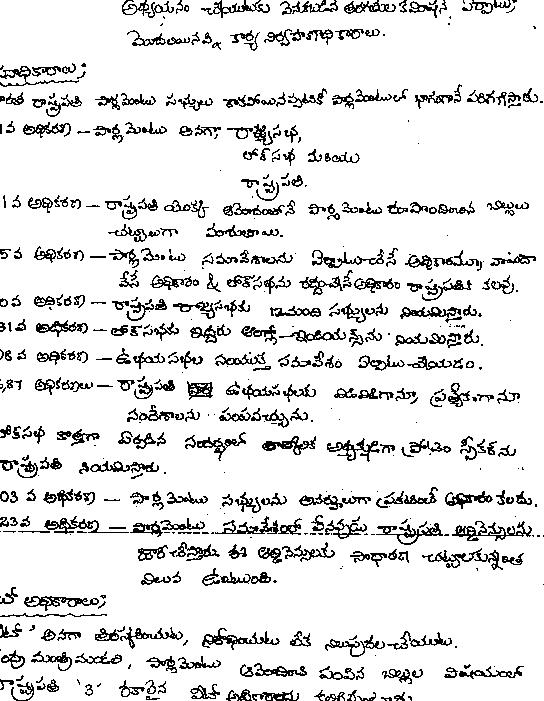 అధ్యయనం చేయుటకు వెనుకబడిన తరగతుల కమిషన్ ఏర్పాటు
మొదలయినవి కార్య నిర్వహణాధికారాలు.
నాధికారాలు;
రాష్ట్రపతి పార్లమెంటు సభ్యులు కాకపోయినప్పటికీ పార్లమెంటులో భాగంగానే పరిగణిస్తారు.
వ అధికరణ - పార్లమెంటు అనగా రాజ్యసభ,
లోక్‌సభ మరియు
రాష్ట్రపతి.
1 వ అధికరణ - రాష్ట్రపతి యొక్క ఆమోదంతోనే పార్లమెంటు రూపొందించిన బిల్లులు
చట్టాలుగా మారుతాయి.
5 వ అధికరణ - పార్లమెంటు సమావేశాలను ఏర్పాటుచేసే అధికారము, వాయిదా
వేసే అధికారం & లోక్‌సభను రద్దుచేసే అధికారం రాష్ట్రపతికి కలవు.
0 వ అధికరణ - రాష్ట్రపతి రాజ్యసభకు 12 మంది సభ్యులను నియమిస్తారు.
31 వ అధికరణ - లోక్‌సభకు ఇద్దరు ఆంగ్లో-ఇండియన్స్‌ను నియమిస్తారు.
08 వ అధికరణ - ఉభయసభల సంయుక్త సమావేశం ఏర్పాటు చేయడం.
,87 అధికరణలు - రాష్ట్రపతి ఉభయసభలకు విడివిడిగాను, ప్రత్యేకంగానూ
సందేశాలను పంపవచ్చును.
లోక్‌సభ కొత్తగా ఏర్పడిన సందర్భంలో తాత్కాలిక అధ్యక్షుడిగా ప్రోటెం స్పీకర్‌ను
రాష్ట్రపతి నియమిస్తారు.
03 వ అధికరణ - పార్లమెంటు సభ్యులను అనర్హులుగా ప్రకటించే అధికారం కలదు.
23వ అధికరణ - పార్లమెంటు సమావేశంలో లేనప్పుడు రాష్ట్రపతి ఆర్డినెన్సులను
జారీ చేస్తారు. ఈ ఆర్డినెన్సులకు సాధారణ చట్టాలకున్నంత
విలువ ఉంటుంది.
టో అధికారాలు;
వీటో' అనగా తిరస్కరించుట, నిరోధించుట లేక నిలుపుదల చేయుట.
కేంద్ర మంత్రిమండలి, పార్లమెంటు ఆమోదించి పంపిన బిల్లుల విషయంలో
రాష్ట్రపతి '3' రకాలైన వీటో అధికారాలను